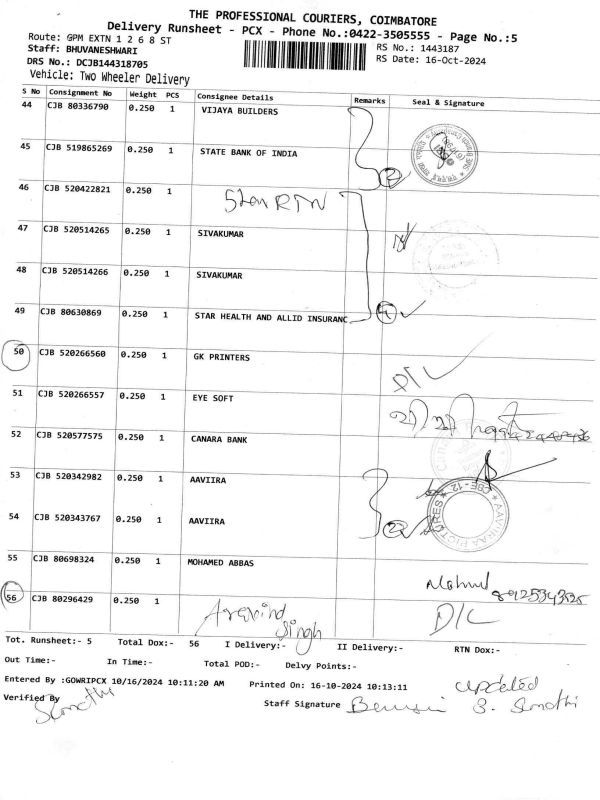 THE PROFESSIONAL COURIERS, COIMBATORE
Delivery Runsheet - PCX - Phone No.:0422-3505555 - Page No.:5
Route: GPM EXTN 1 2 6 8 ST
RS No.: 1443187
Staff: BHUVANESHWARI
RS Date: 16-Oct-2024
DRS No.: DCJB144318705
Vehicle: Two Wheeler Delivery
S No Consignment No Weight PCS Consignee Details Remarks Seal & Signature
44 CJB 80336790 0.250 1 VIJAYA BUILDERS
45 CJB 519865269 0.250 1 STATE BANK OF INDIA 2
46 CJB 520422821 0.250 1
47 CJB 520514265 0.250 1 SIVAKUMAR
48 CJB 520514266 0.250 1 SIVAKUMAR
49 CJB 80630869 0.250 1 STAR HEALTH AND ALLID INSURANC 4
50 CJB 520266560 0.250 1 GK PRINTERS D/L
51 CJB 520266557 0.250 1 EYE SOFT
52 CJB 520577575 0.250 1 CANARA BANK
53 CJB 520342982 0.250 1 AAVIIRA
54 CJB 520343767 0.250 1 AAVIIRA 2
AAVIIRAA PICTURES * CBE-12 *
55 CJB 80698324 0.250 1 MOHAMED ABBAS
56 CJB 80296429 0.250 1 Aravind Singh D/L
Tot. Runsheet:- 5 Total Dox:- 56 I Delivery:- II Delivery:- RTN Dox:-
Out Time:- In Time:- Total POD:- Delvy Points:-
Entered By :GOWRIPCX 10/16/2024 10:11:20 AM Printed On: 16-10-2024 10:13:11 updated
Verified By Staff Signature